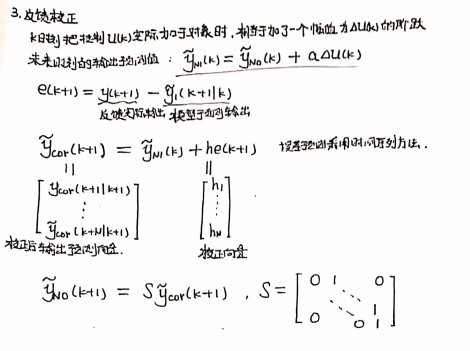 3. 反馈校正
k时刻把控制u(k)实际加于对象时，相当于加了一个幅值为Δu(k)的阶跃
未来时刻的输出预测值：ỹ_N1(k) = ỹ_N0(k) + aΔu(k)
e(k+1) = y(k+1) − ỹ₁(k+1|k)
反馈实际输出 模型预测输出
ỹcor(k+1) = ỹ_N1(k) + he(k+1) 误差预测采用时间序列方法.
|| ||
[ỹcor(k+1|k+1) ⋮ ỹcor(k+N|k+1)] [h₁ ⋮ h_N]
校正后输出预测向量. 校正向量
ỹ_N0(k+1) = Sỹcor(k+1) , S = [0 1 0 ⋱ ⋱ 1 0 0 1]